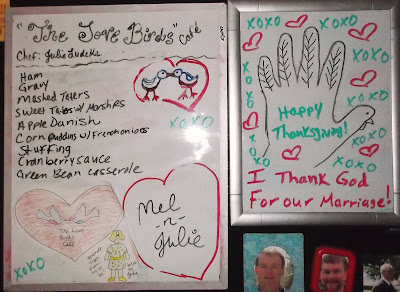 "The Love Birds" café
Chef: Julie Zudeka
Ham
Gravy
Mashed Taters
Sweet Taters w/ Marshes
Apple Danish
Corn Pudding w/ Frenchonions
Stuffing
Cranberry sauce
Green Bean casserole
XOXO
Mel
-n-
Julie
The Love
Birds
Café
XOXO
XOXO
XOXO
XOXO
XOXO
XOXO
Happy
Thanksgiving!
XOXO
XOXO
XOXO
I Thank God
For our Marriage!